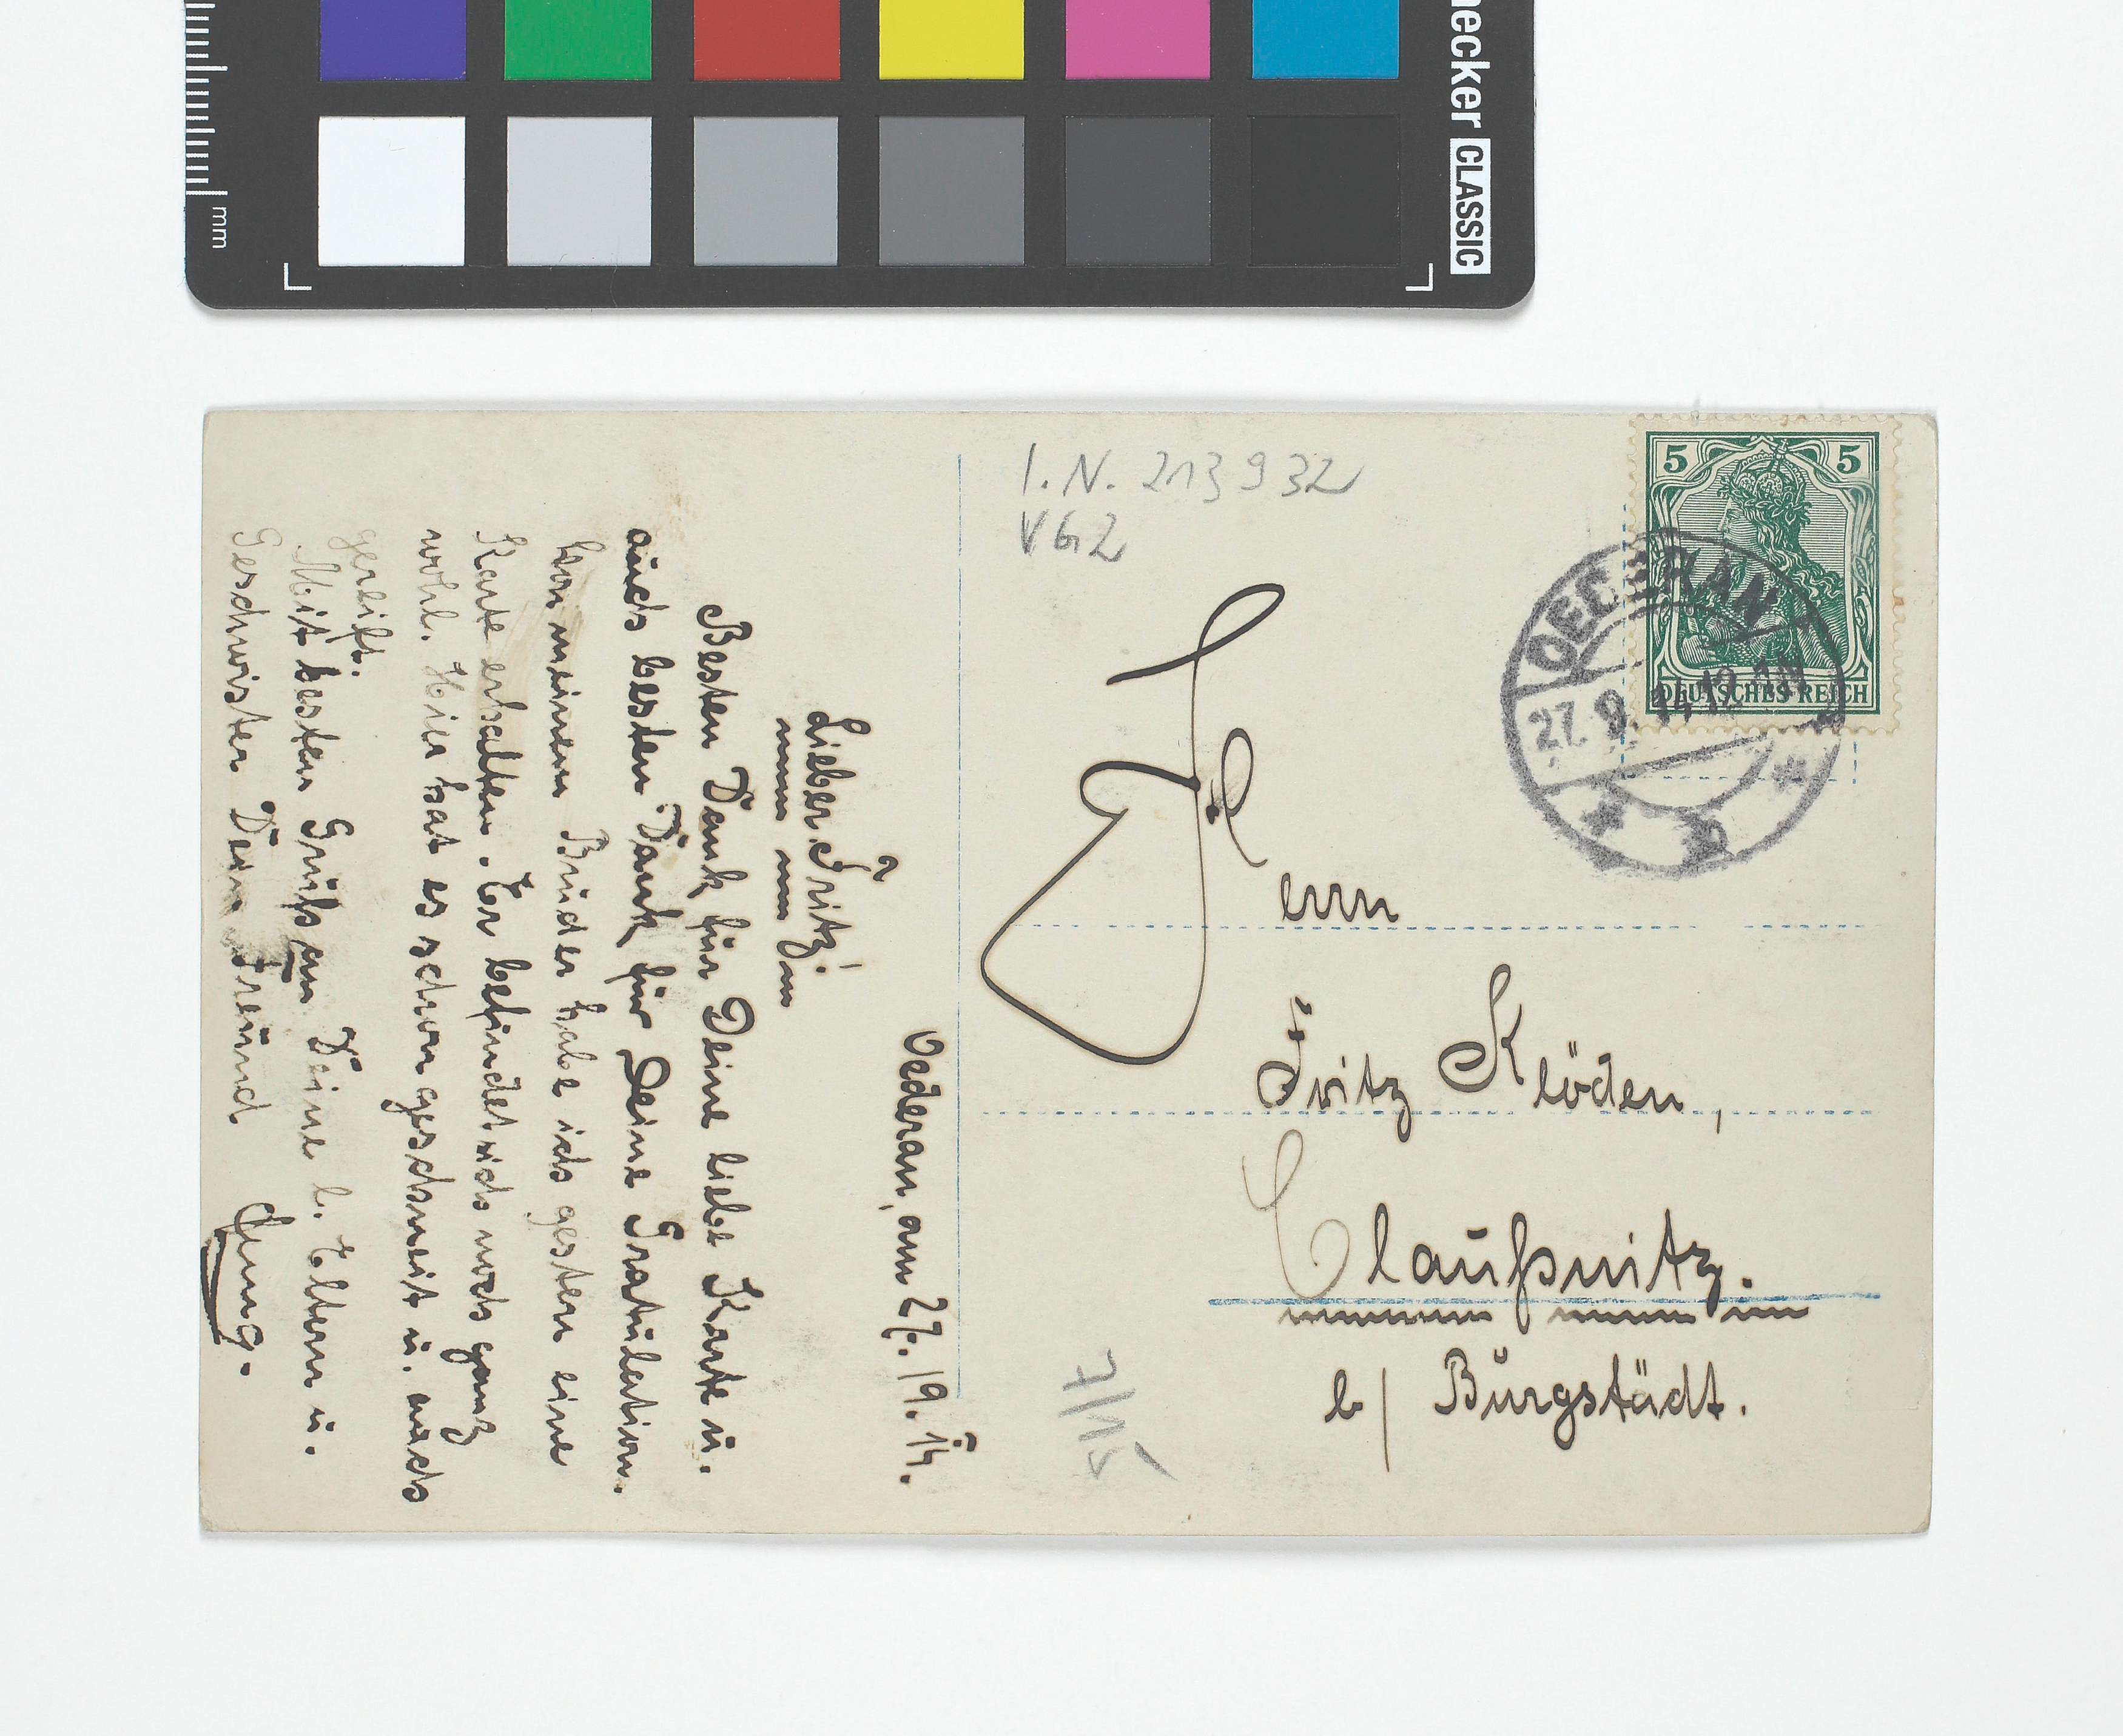 mm
necker CLASSIC
I.N. 213 932
V G 2
5 5
DEUTSCHES REICH
OEDERAN
27. 9. 14. 12
Herrn
Fritz Klöden,
Claußnitz.
b/ Burgstädt.
Oederan, am 27. 19. 14.
Lieber Fritz!
Besten Dank für Deine liebe Karte u.
auch besten Dank für Deine Gratulation.
Von meinem Bruder habe ich gestern eine
Karte erhalten. Er befindet sich noch ganz
wohl. Hier hat es schon geschneit u. auch
gereift.
Mit besten Gruß an Deine l. Eltern u.
Geschwister Dein Freund